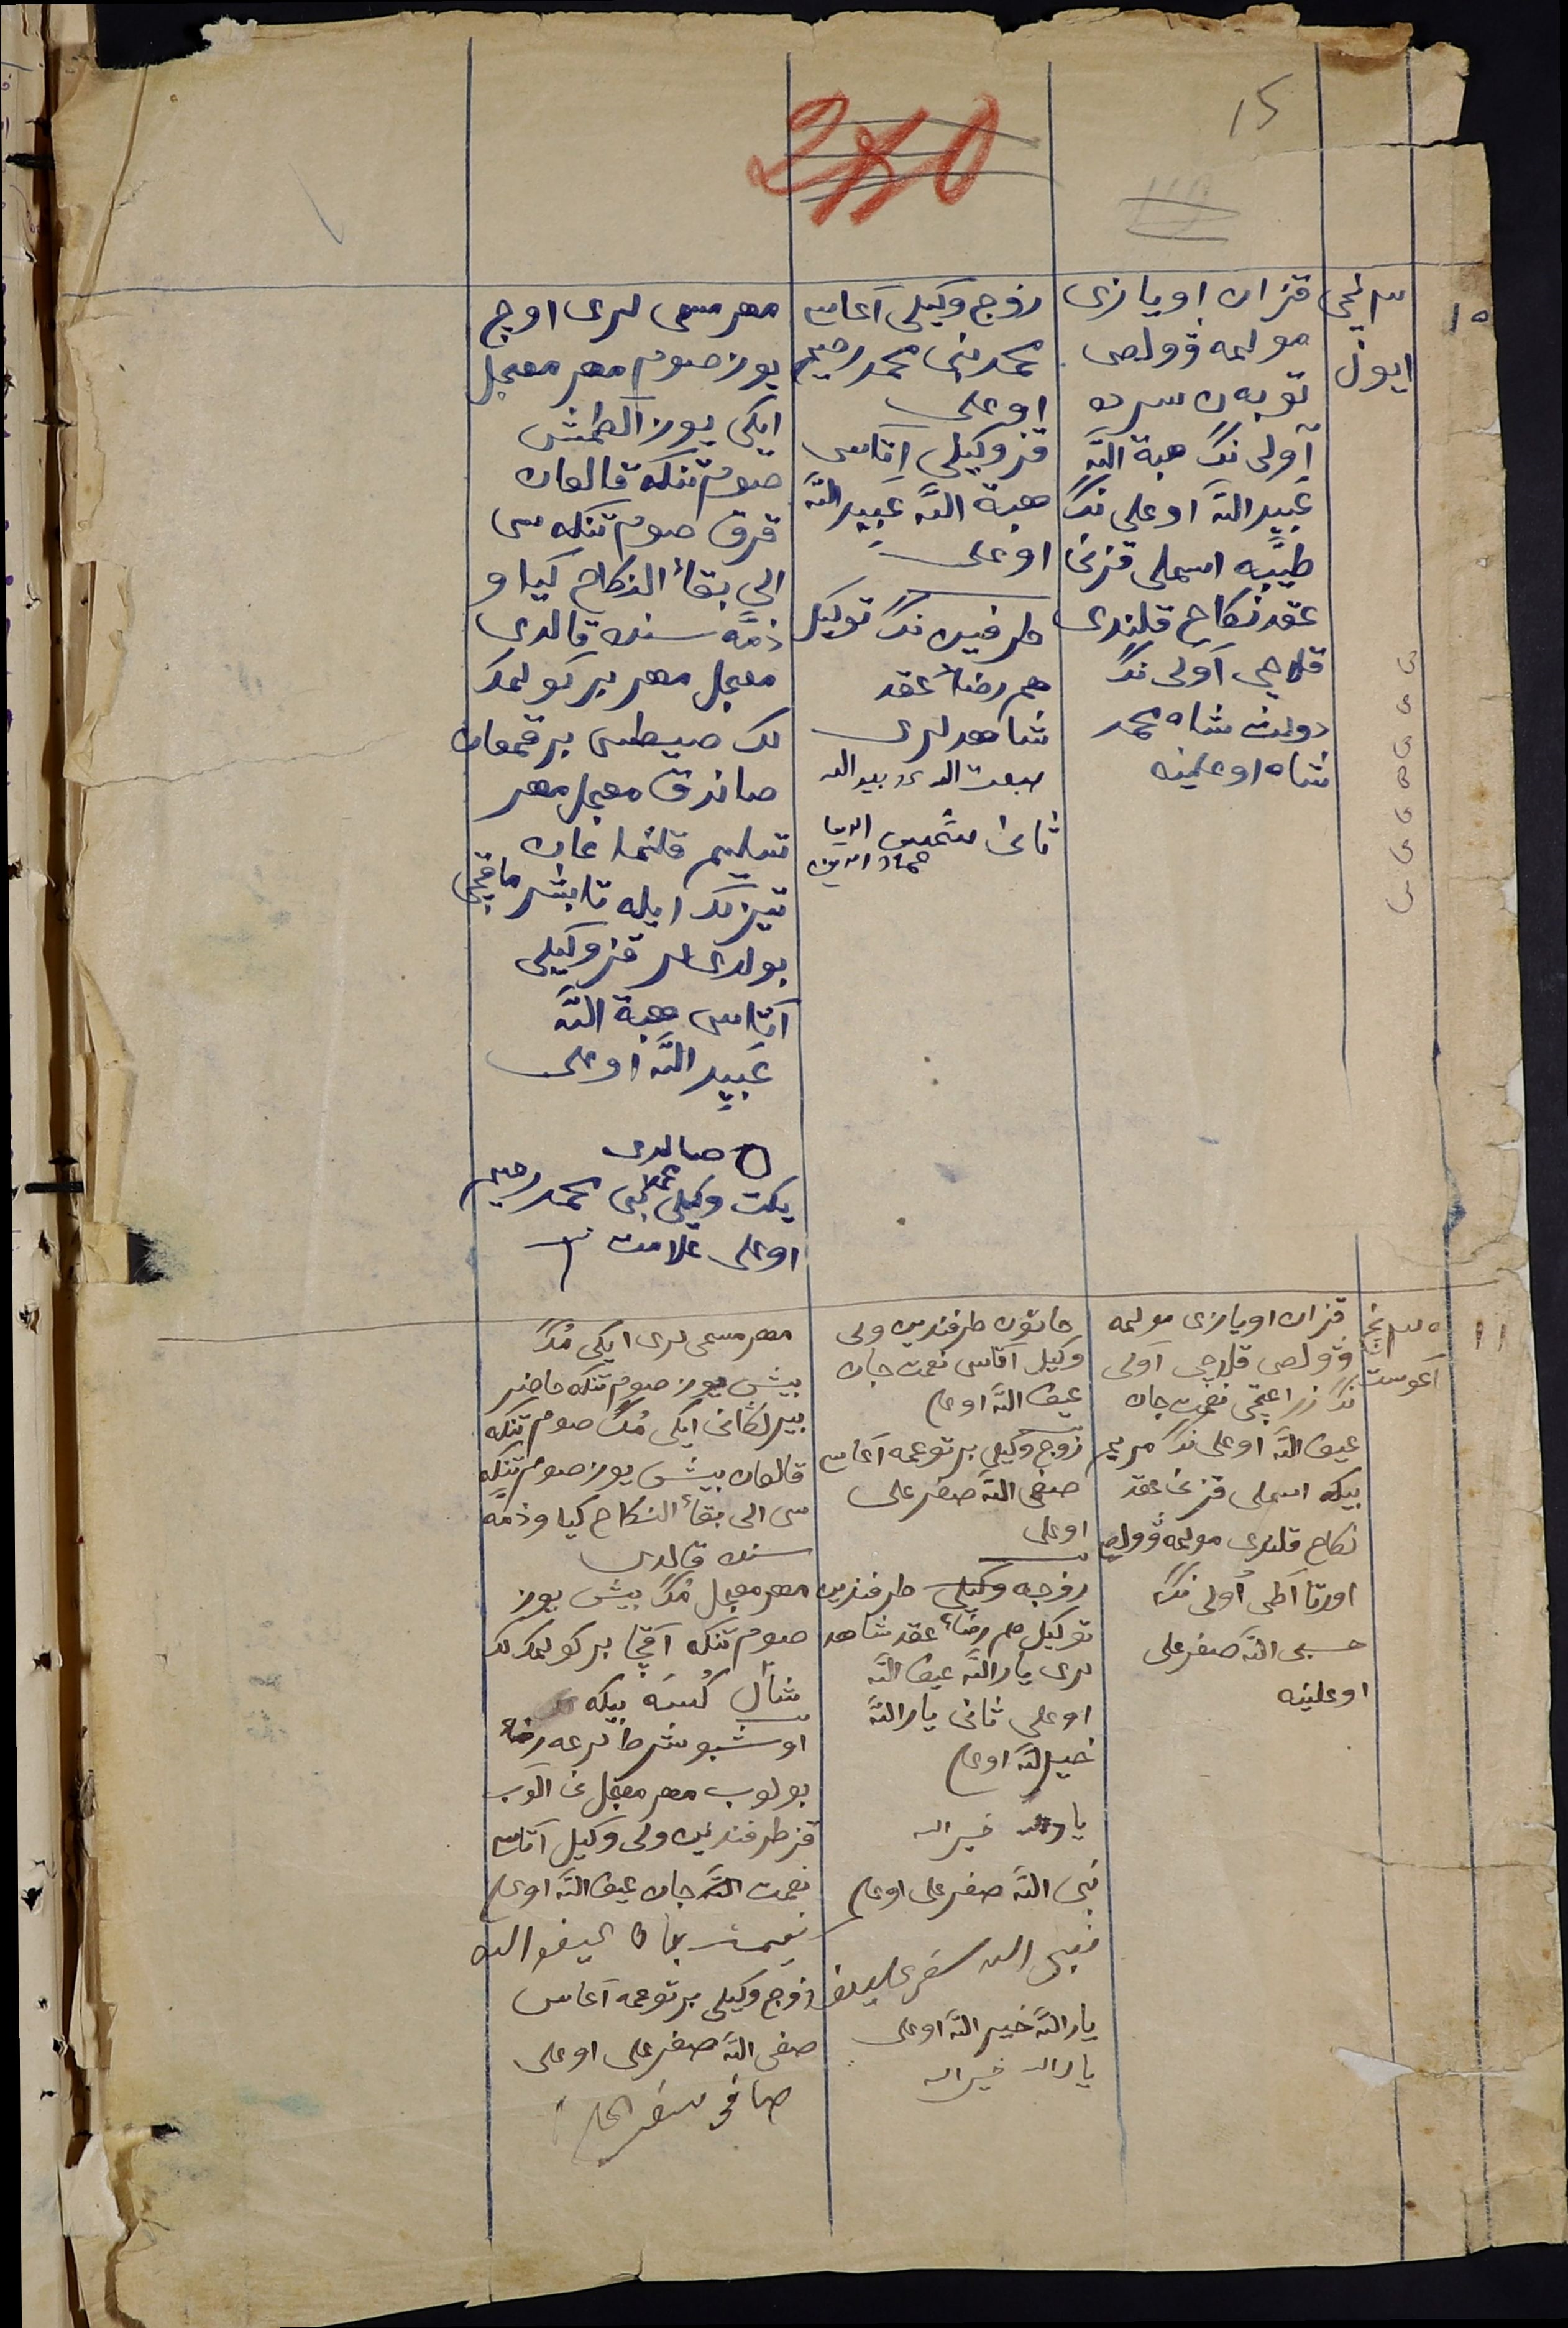 15
280
١٠
٣ نچی
ایول
قزان اویازی
مولمه ڤولصی
توبه ن سرده
آولی نڭ هبة الله
عبید الله اوغلی نڭ
طیبه اسملی قزنی
عقد نکاح قلندی
قلاچی آولی نڭ
دولت شاه محمد
شاه اوغلینه
زوج وکیلی آغاسی
محمد نبی محمد رحیم
اوغلی
قز وکیلی آتاسی
هبة الله عبید الله
اوغلی
طرفین نڭ توکیل
هم رضاء عقد
شاهدلری
ثانی
مهر مسمی لری اوچ
یوز صوم مهر معجل
ایکی یوز آلطمش
صوم تنکه قالغان
قرق صوم تنکه سی
الی بقاء النکاح کیاو
ذمه سنده قالدی
معجل مهر بر کولمک
لک صیطس بر قمغان
صاندق معجل مهر
تسلیم قلنماغان
تیزلک ایله تابشرماقچی
بولدیلر قز وکیلی
آتاسی هبة الله
عبید الله اوغلی
صالدی
یکت وکیلی محمد نبی محمد رحیم
اوغلی علامت
١١
٢٥ نچی
آغوست
قزان اویازی مولمه
ڤولصی قلاچی آولی
نڭ زراعتچی نعمت جان
عیف الله اوغلی نڭ مریم
بیکه اسملی قزنی عقد
نکاح قلندی مولمه ڤولصی
اورتا آطی آولی نڭ
حسبی الله صفر علی
اوغلینه
خاتون طرفندین ولی
وکیل آتاسی نعمت جان
عیف الله اوغلی
زوج وکیلی بر توغمه آغاسی
صفی الله صفر علی
اوغلی
زوجه وکیلی طرفندین
توکیل هم رضاء عقد شاهد
لری یار الله عیف الله
اوغلی ثانی یار الله
خیر الله اوغلی
یار الله خیر الله
نبی الله صفر علی اوغلی
نبی الله سفر علیف
یار الله خیر الله اوغلی
یار الله خیر الله
مهر مسمی لری ایکی مڭ
بیش یوز صوم تنکه حاضر
بیرلکانی ایکی مڭ صوم تنکه
قالغان بیش یوز صوم تنکه
سی الی بقاء النکاح کیاو ذمه
سنده قالدی
مهر معجل مڭ بیش یوز
صوم تنکه آقچا بر کولمک لک
شال کسه بیکه
اوشبو شرطلرغه رضا
بولوب مهر معجل نی آلوب
قز طرفندین ولی وکیل آتاسی
نعمت الله جان عیف الله اوغلی
نعمت جان عیف الله
زوج وکیلی بر توغمه آغاسی
صفی الله صفر علی اوغلی
صافی سفر